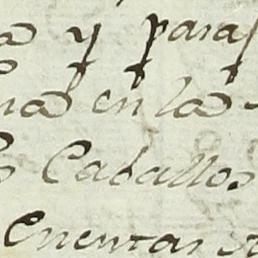 a y para
na en la
s Caballos
Cuentas